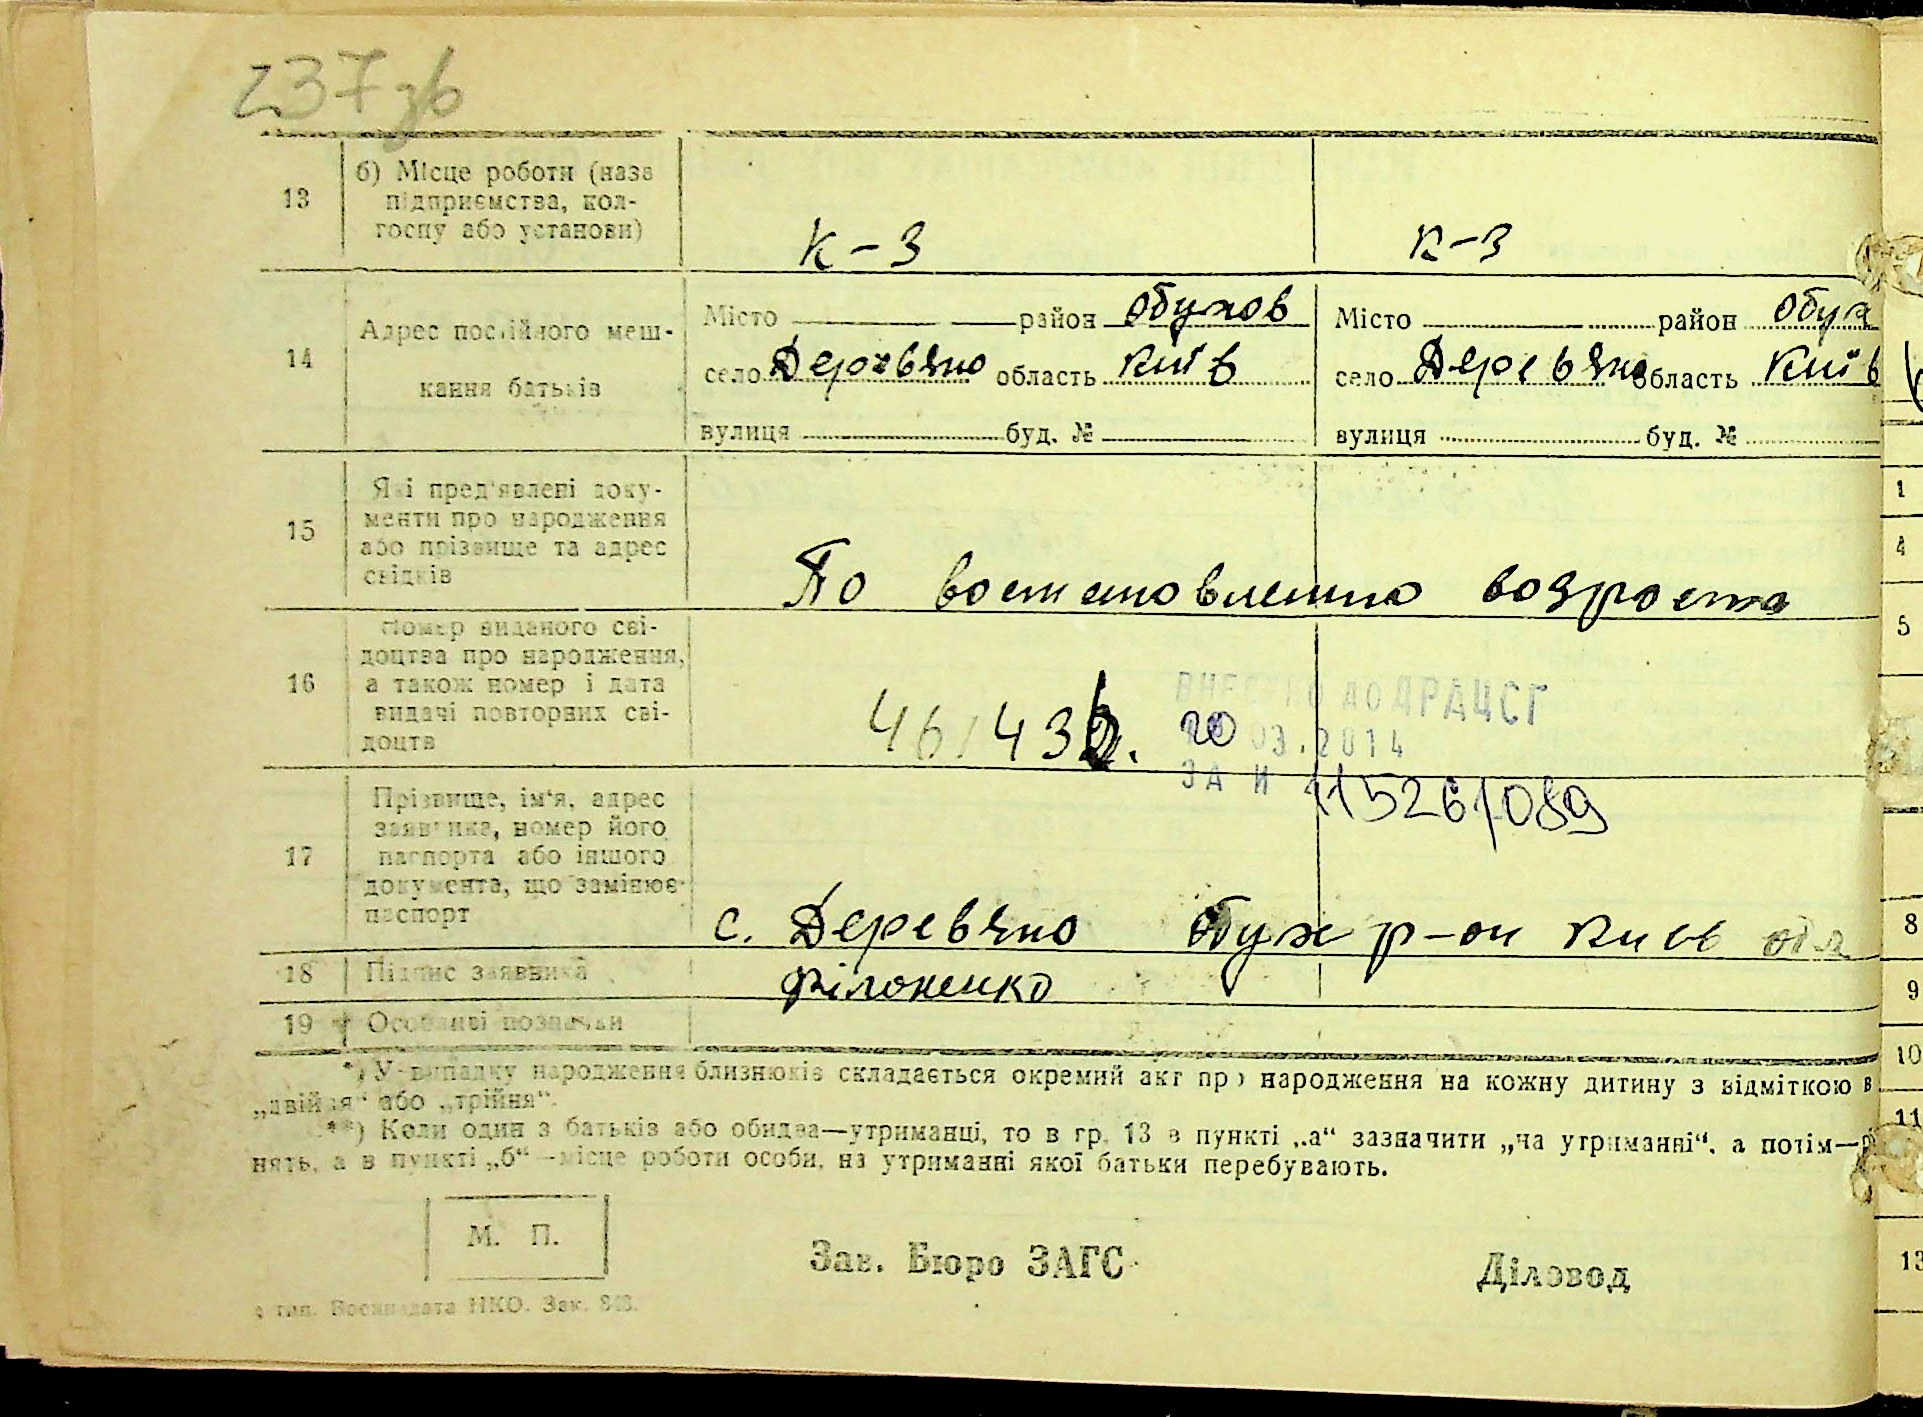 237 зв
13 б) Місце роботи (назв підприємства, колгоспу або установи) К-З К-З
14 Адрес постійного мешкання батьків
Місто район Обухов Місто район Обух
село Деревьяно область Київ село Деревьяно область Київ
вулиця буд. № вулиця буд. №
15 Які пред'явлені документи про народження або прізвище та адрес свідків
По востановлению возроста
16 Номер виданого свідоцтва про народження, а також номер і дата видачі повторних свідоцтв
ВНЕСЕНО ДО ДРАЦСГ
20 03.2014
ЗА N 115261089
17 Прізвище, ім'я, адрес заявника, номер його паспорта або іншого документа, що замінює паспорт
с. Деревяно Обух р-он Киев обл
18 Підпис заявника Філоненко
19 Особливі позначки
*) У випадку народження близнюків складається окремий акт про народження на кожну дитину з відміткою в
„двійня“ або „трійня“.
**) Коли один з батьків або обидва—утриманці, то в гр. 13 в пункті „а“ зазначити „на утриманні“, а потім—
нять, а в пункті „б“ —місце роботи особи, на утриманні якої батьки перебувають.
М. П.
Зав. Бюро ЗАГС Діловод
НКО. Зак.
1
4
5
8
9
10
11
13